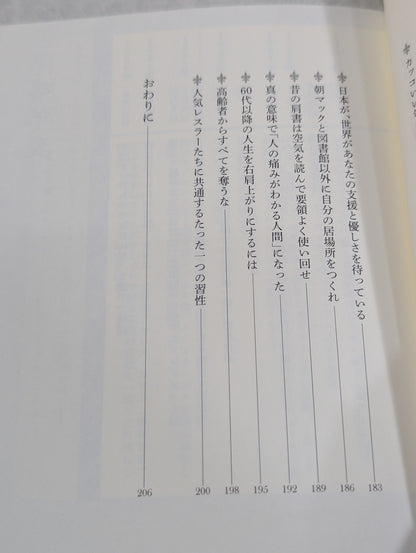 日本が、世界があなたの支援と優しさを待っている 183
朝マックと図書館以外に自分の居場所をつくれ 186
昔の肩書は空気を読んで要領よく使い回せ 189
真の意味で「人の痛みがわかる人間」になった 192
60代以降の人生を右肩上がりにするには 195
高齢者からすべてを奪うな 198
人気レスラーたちに共通するたった一つの習性 200
おわりに 206